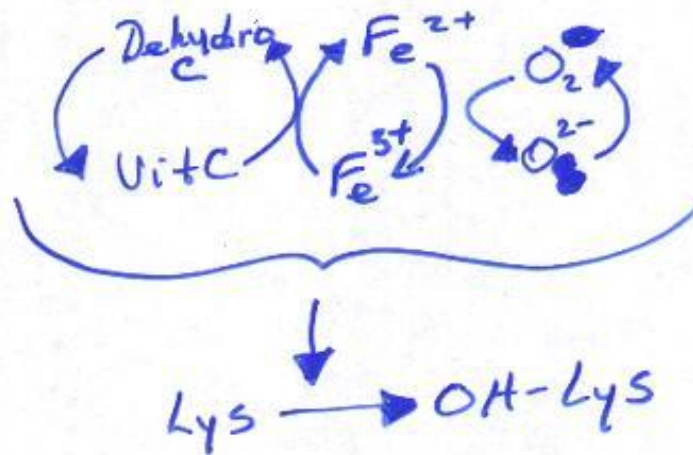 Dehydro C Fe²⁺ O₂
Vit C Fe³⁺ O²⁻
Lys → OH-Lys